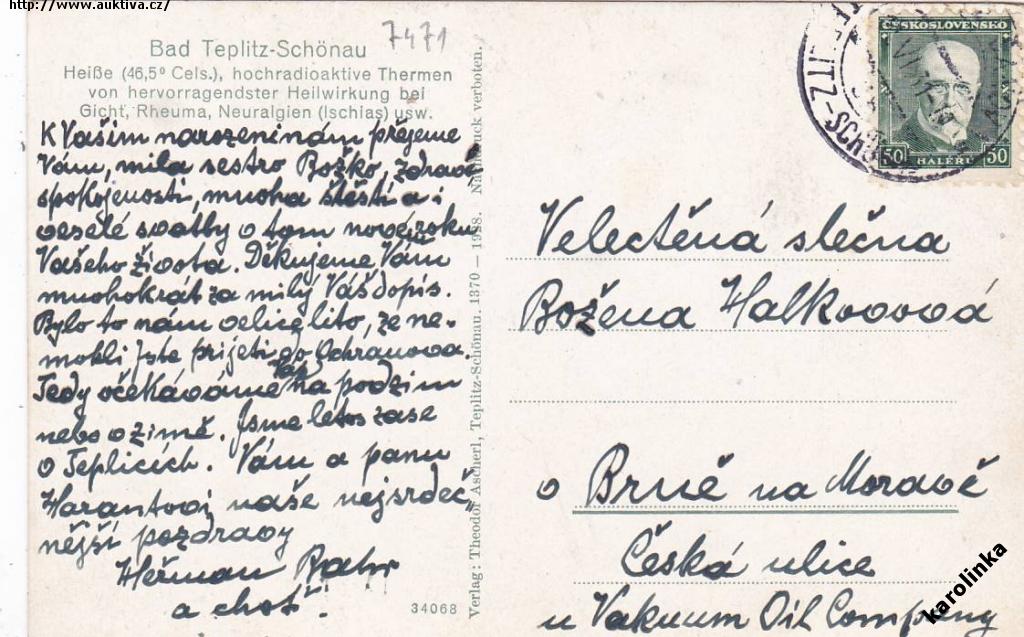 http://www.auktiva.cz/
7471
Bad Teplitz-Schönau
Heiße (46,5º Cels.), hochradioaktive Thermen
von hervorragendster Heilwirkung bei
Gicht, Rheuma, Neuralgien (Ischias) usw.
K Vašim narozeninám přejeme
Vám, milá sestro Božko, zdraví
spokojenosti, mnoha štěstí a i
veselé svatby v tom nové roku
Vašeho života. Děkujeme Vám
mnohokrát za milý Váš dopis.
Bylo to nám velice líto, že ne-
mohli jste přijeti do Ochranova.
Tedy očekáváme Vás na podzim
nebo v zimě. Jsme letos zase
v Teplicích. Vám a panu
Harantovi naše nejsrdeč-
nější pozdravy
Heřman
a choť!
34068
Verlag: Theodor Ascherl, Teplitz-Schönau. 1370 — 1928. Nachdruck verboten.
ČESKOSLOVENSKO
50 HALÉŘŮ 50
Velectěná slečna
Božena Halkovová
v Brně na Moravě
Česká ulice
u Vakuum Oil Company
karolinka